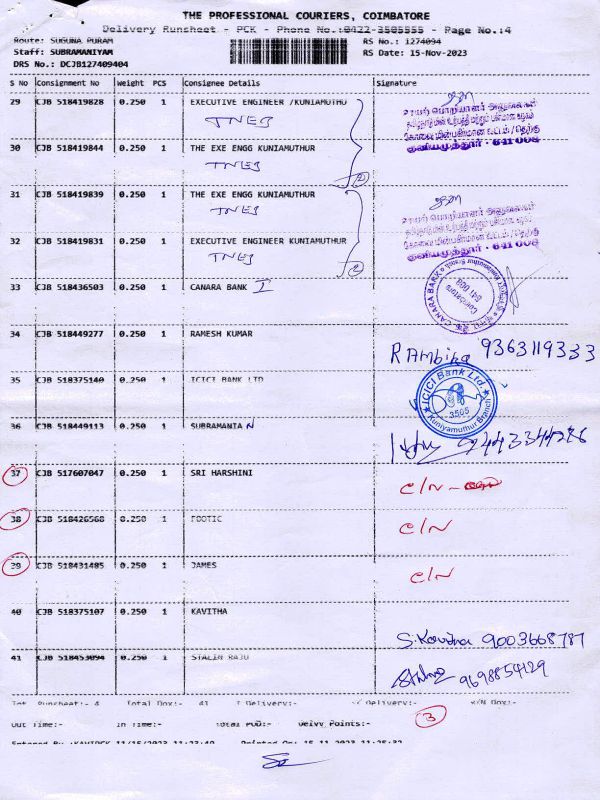 THE PROFESSIONAL COURIERS, COIMBATORE
Delivery Runsheet - PCK - Phone No.:0422-3505555 - Page No.:4
Route: SUGUNA PURAM
RS No.: 1274094
Staff: SUBRAMANIYAM
RS Date: 15-Nov-2023
DRS No.: DCJB127409404
S No Consignment No Weight PCS Consignee Details Signature
29 CJB 518419828 0.250 1 EXECUTIVE ENGINEER /KUNIAMUTHU
TNEB
30 CJB 518419844 0.250 1 THE EXE ENGG KUNIAMUTHUR
TNEB
குனியமுத்தூர் - 641 008
31 CJB 518419839 0.250 1 THE EXE ENGG KUNIAMUTHUR
TNEB
32 CJB 518419831 0.250 1 EXECUTIVE ENGINEER KUNIAMUTHUR
TNEB
குனியமுத்தூர் - 641 008
33 CJB 518436503 0.250 1 CANARA BANK I
CANARA BANK
Kuniamuthur Branch
Coimbatore
641 008
34 CJB 518449277 0.250 1 RAMESH KUMAR
R Ambika 9363119333
35 CJB 518375140 0.250 1 ICICI BANK LTD
ICICI Bank Ltd.
3505
Kuniyamuthur Branch
36 CJB 518449113 0.250 1 SUBRAMANIAN
37 CJB 517607047 0.250 1 SRI HARSHINI
C/N -
38 CJB 518426568 0.250 1 FOOTIC
C/N
39 CJB 518431485 0.250 1 JAMES
C/N
40 CJB 518375107 0.250 1 KAVITHA
S. Kavitha 9003668787
41 CJB 518453094 0.250 1 STALIN RAJU
9698854129
Tot Runsheet:- 4 Total Dox:- 41
3
Out Time:- In Time:- Total POD:- Delvy Points:-
Entered By :KAVIPCK 11/15/2023 11:23:49 Printed On: 15-11-2023 11:25:32